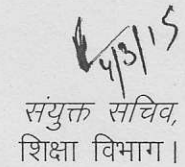 4/3/15
संयुक्त सचिव,
शिक्षा विभाग।